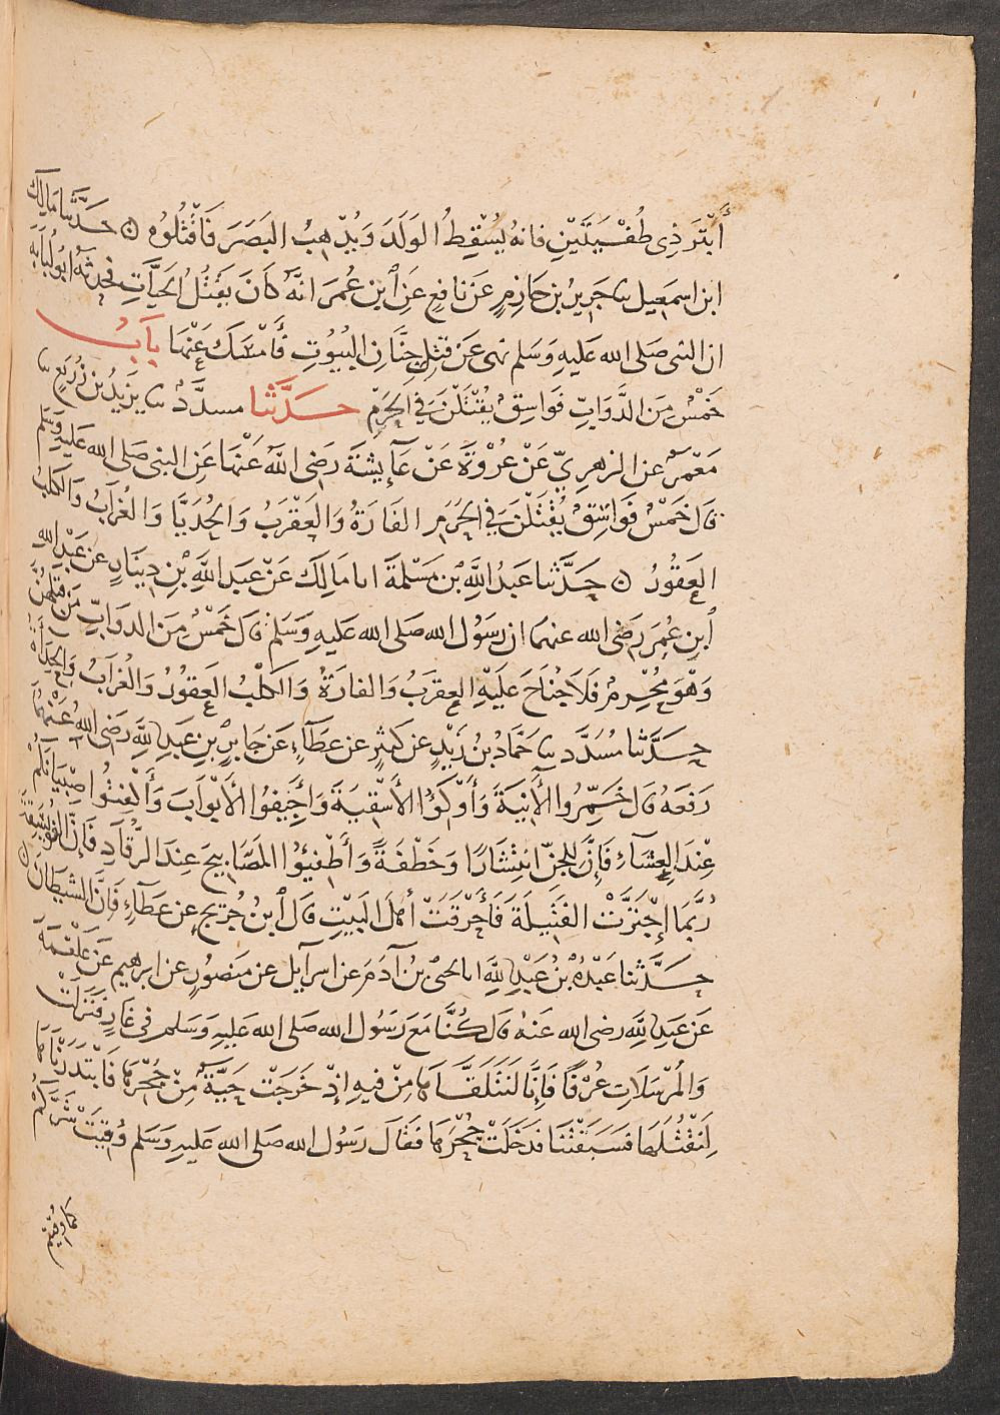 أَبْتَرَ ذِي طُفْيَتَيْنِ فانهُ يُسْقِطُ الوَلَدَ وَيُذْهِبُ البَصَرَ فَأقْتُلُوهُ ۞ حَدَّثنا مَالِكُ
ابن اسمعيل نا جَرِيرُ بن حَازِمٍ عَن نَافِعٍ عَنِ ابْنِ عُمَرَ انَّهُ كَانَ يَقْتُلُ الحَيَّاتِ فحدثهُ ابُو لُبَابَة
ان النبى صَلى الله عَليهِ وَسَلم نهى عَن قَتلِ جِنَّانِ البُيُوتِ فَأمْسَكَ عَنْهَا بَابُ
خَمْسٌ مِنَ الدَّوَابِّ فَوَاسِقُ يُقْتَلْنَ فِي الحَرَمِ حَدَّثنا مسدَّدٌ نا يَزِيدُ بن زُرَيعٍ نا
مَعْمَرٌ عن الزهرِيِّ عَنْ عُرْوَةَ عَنْ عَايِشَةَ رَضِى اللَّهُ عَنْهَا عَنِ النبى صَلى الله عَليهِ وَسَلم
قَالَ خَمْسٌ فَوَاسِقُ يُقْتَلْنَ فِي الحَرَمِ الفَارَةُ وَالعَقْرَبُ وَالحُدَيَّا وَالغُرَابُ وَالكَلبُ
العَقُورُ ۞ حَدَّثنا عَبدُ اللَّهِ بْن مَسْلمَةَ انا مَالِكٌ عَنْ عَبدِ اللَّهِ بْنِ دِينَارٍ عَن عَبْدِ اللهِ
ابْنِ عُمَرَ رَضِى الله عنهما ان رَسُول الله صَلى الله عَليهِ وَسَلم قال خَمْسٌ مِنَ الدوَابِّ مَن قَتَلهُنَّ
وَهْوَ مُحْرِمٌ فَلَا جُنَاحَ عَلَيْهِ العقرَبُ وَالفارَةُ وَالكَلْبُ العَقُورُ وَالغُرَابُ وَالحِدَأَةُ
حَدَّثنا مُسَدَّدٌ نا حَمَّادُ بْنُ زَيْدٍ عَن كَثِيرٍ عن عَطَاءٍ عَن جَابِرِ بْنِ عَبدِ اللَّهِ رَضِى اللهُ عَنْهُمَا
رَفَعَهُ قَالَ خَمِّرُوا الآنِيَةَ وَأَوْكُوا الأسْقِيَةَ وَأَجِيفُوا الأبْوَابَ وَأَكْفِتُوا صِبْيَانَكُمْ
عِنْدَ العِشَاءِ فَإِنَّ لِلجِنِّ انْتِشَارًا وَخَطْفَةً وَأَطْفِئُوا المَصَابِيحَ عِندَ الرُّقَادِ فَإِنَّ الفُوَيْسِقَةَ
رُبَّمَا اجْتَرَّتْ الفَتِيلَةَ فَأَحْرَقَتْ أهلَ البَيْتِ قَالَ ابْنُ جُرَيجٍ عن عَطَاءٍ فَإِنَّ الشيطَانَ ۞
حَدَّثنا عَبْدَةُ بْنُ عَبْدِ اللَّهِ انا يحيَى بنُ آدَمَ عن اسرآيل عَن مَنصُورٍ عن ابرهيم عَنْ عَلْقَمَةَ
عَن عَبدِ اللَّهِ رضى الله عَنهُ قَالَ كُنَّا مَعَ رَسُول الله صَلى الله عَليهِ وَسَلم فى غَارٍ فَنَزَلَتْ
وَالمُرْسَلَاتِ عُرْفًا فَإِنَّا لَنَتَلَقَّاهَا مِنْ فِيهِ إِذْ خَرَجَتْ حَيَّةٌ مِنْ جُحْرِهَا فَابْتَدَرْنَاهَا
لِنَقْتُلَهَا فَسَبَقَتْنَا فدَخَلَتْ جُحْرَهَا فَقَال رَسُول الله صَلى الله عَليهِ وَسَلم وُقِيَتْ شَرَّكُمْ
كما وُقِيتُم